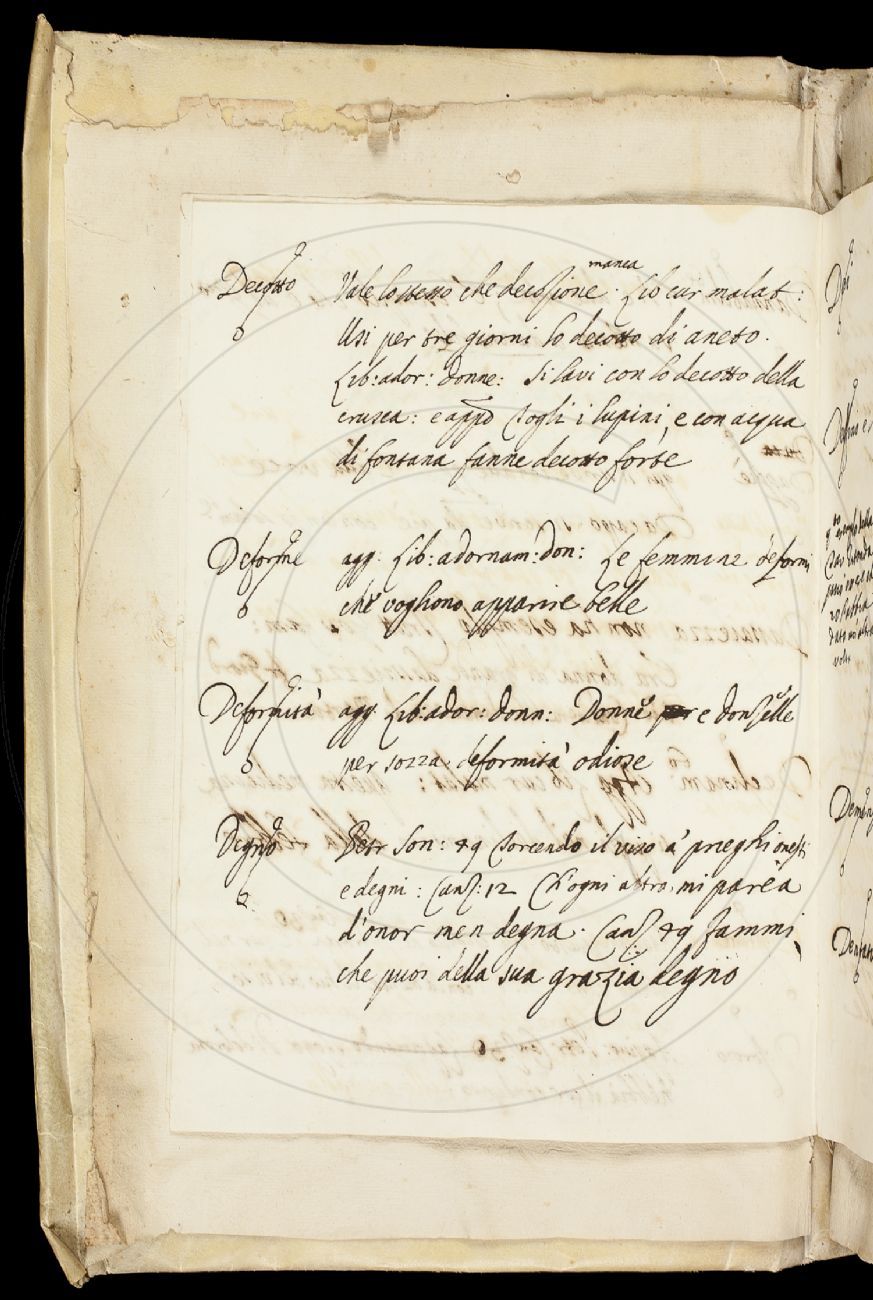 Decotto Vale lo stesso che decozione. manca Lib cur malat:
Usi per tre giorni lo decotto di aneto.
Lib: ador: donne: Si lavi con lo decotto della
crusca: e app.o Togli i lupini, e con acqua
di fontana fanne decotto forte
Deforme agg: Lib: adornam: don: Le femmine deformi
che vogliono apparire belle
Deformità agg: Lib: ador: donn: Donne e donzelle
per sozza deformità odiose
Degno Petr Son: 49 Torcendo il viso a' prieghi onesti
e degni: Canz: 12 Ch'ogni altro mi parea
d'onor men degna. Canz 49 fammi,
che puoi della sua grazia degno